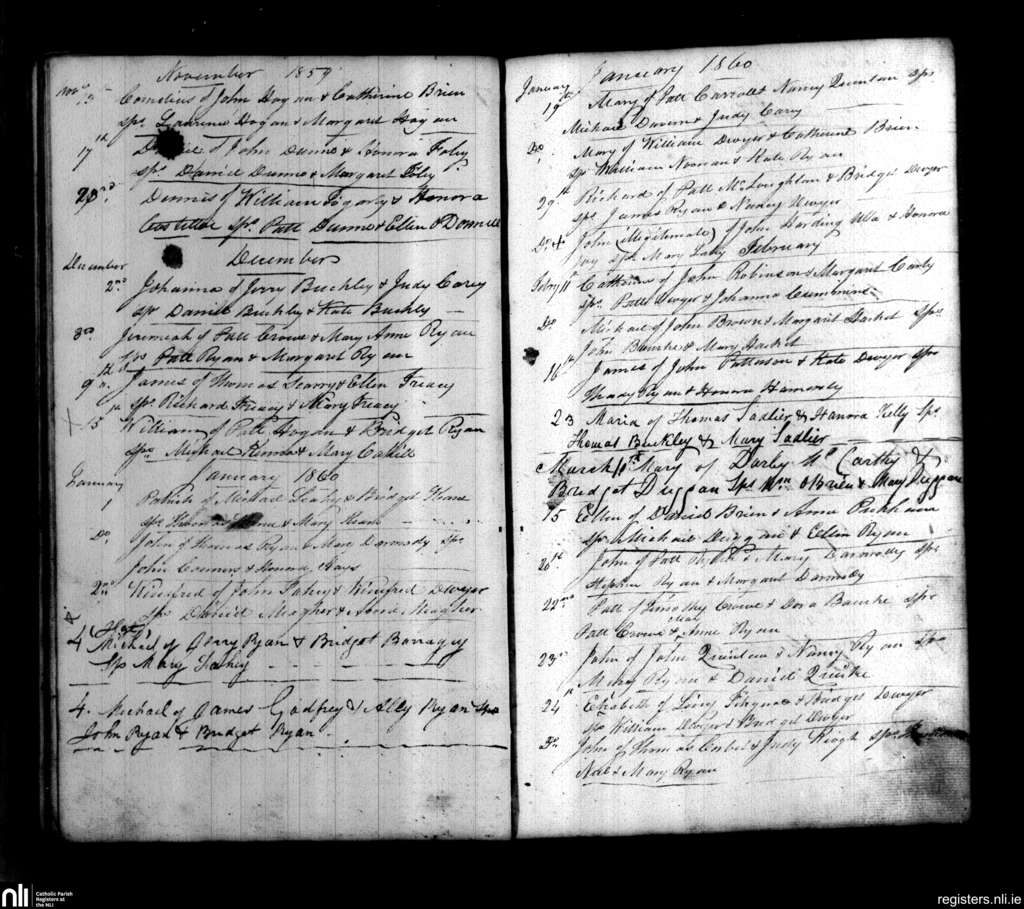 November 1859
Novr 5 Cornelius of John Hogan & Catherine Brien
sps Laurence Hogan & Margaret Hogan
17th Daniel of John Dunne & Honora Foley
sps Daniel Dunne & Margaret Foley
Dennis of William Fogarty & Honora
Costelloe sps Patt Dunne & Ellen O Donnell
December
December 2nd Johanna of Jerry Buckley & Judy Carey
sps Daniel Buckley & Kate Buckley
3rd Jeremiah of Patt Crowe & Mary Anne Ryan
sps Patt Ryan & Margaret Ryan
9th James of Thomas & Ellen Treacy
sps Richard Treacy & Mary Treacy
William of Patt Hogan & Bridget Ryan
sps Michael & Mary Cahill
January January 1860
1 Patrick of Michael Leahy & Bridget
sps & Mary
Do John of Thomas Ryan & Mary Darmody sps
John &
2nd Winefred of John Fahey & Winefred Dwyer
sps Daniel Meagher & Anne Meagher
4 Michael of Jerry Ryan & Bridget
sps Mary Fahey
4. Michael of James Godfrey & Ally Ryan sps
John Ryan & Bridget Ryan
January 1860
January 19th Mary of Patt Carroll & Nancy Quinlan sps
Michael & Judy Carey
Do Mary of William Dwyer & Catherine Brien
sps William Noonan & Kate Ryan
29th Richard of Patt McLoughlin & Bridget Dwyer
sps James Ryan & Dwyer
Do + John (illegitimate) of John Harding & Honora
sps Mary February
Febry 11 Catherine of John Robinson & Margaret
sps Patt Dwyer & Johanna Cummins
Do Michael of John Brown & Margaret Hacket sps
John Bourke & Mary Hacket
16th James of John Patterson & Kate Dwyer sps
Thady Ryan & Honora
23 Maria of Thomas Sadlier & Hanora Kelly sps
Thomas Buckley & Mary Sadlier
March 11th Mary of Darby Mc Carthy &
Bridget Duggan sps Wm O Brien & Mary Duggan
15 Ellen of David Brien & Anne
sps Michael & Ellen Ryan
John of Patt & Mary Darmody sps
Stephen Ryan & Margaret Darmody
22nd Patt of Timothy Crowe & Dora Bourke sps
Patt Crowe & Anne Ryan
23rd John of John Quinlan & Nancy Ryan sps
Ryan & Daniel Quirke
24 Elizabeth of & Bridget Dwyer
sps William Dwyer & Bridget Dwyer
Do John of Thomas & Judy Keogh sps
& Mary Ryan
nli Catholic Parish
Registers at
the NLI
registers.nli.ie